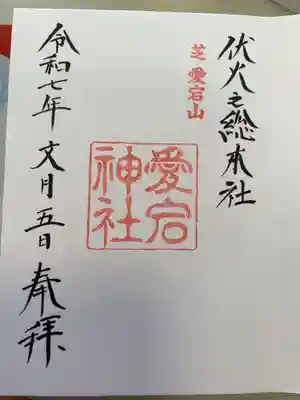 伏火之総本社
芝愛宕山
愛宕神社
令和七年文月五日奉拝